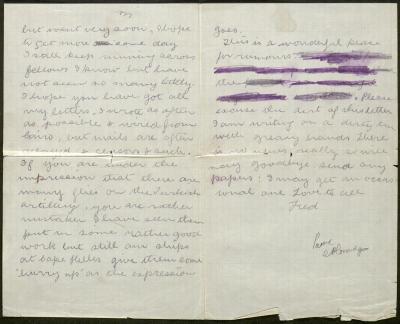 but went very soon, I hope
to get more some day
I still keep running across
fellows I know but have
not seen so many lately.
I hope you have got all
my letters, I wrote as often
as possible & wired from
Cairo, but mails are often
If you are under the
impression that there are
many flies on the Turkish
artillery, you are rather
mistaken I have seen them
put in some rather good
work but still our ships
at Cape Helles give them some
"hurry up" as the expression
goes.
This is a wonderful place
for rumours
the
Please
excuse the dirt of this letter
I am writing on a dirty
with greasy hands. There
is no news really so will
say goodbye send any
papers; I may get an occas
ional one Love to all
Fred